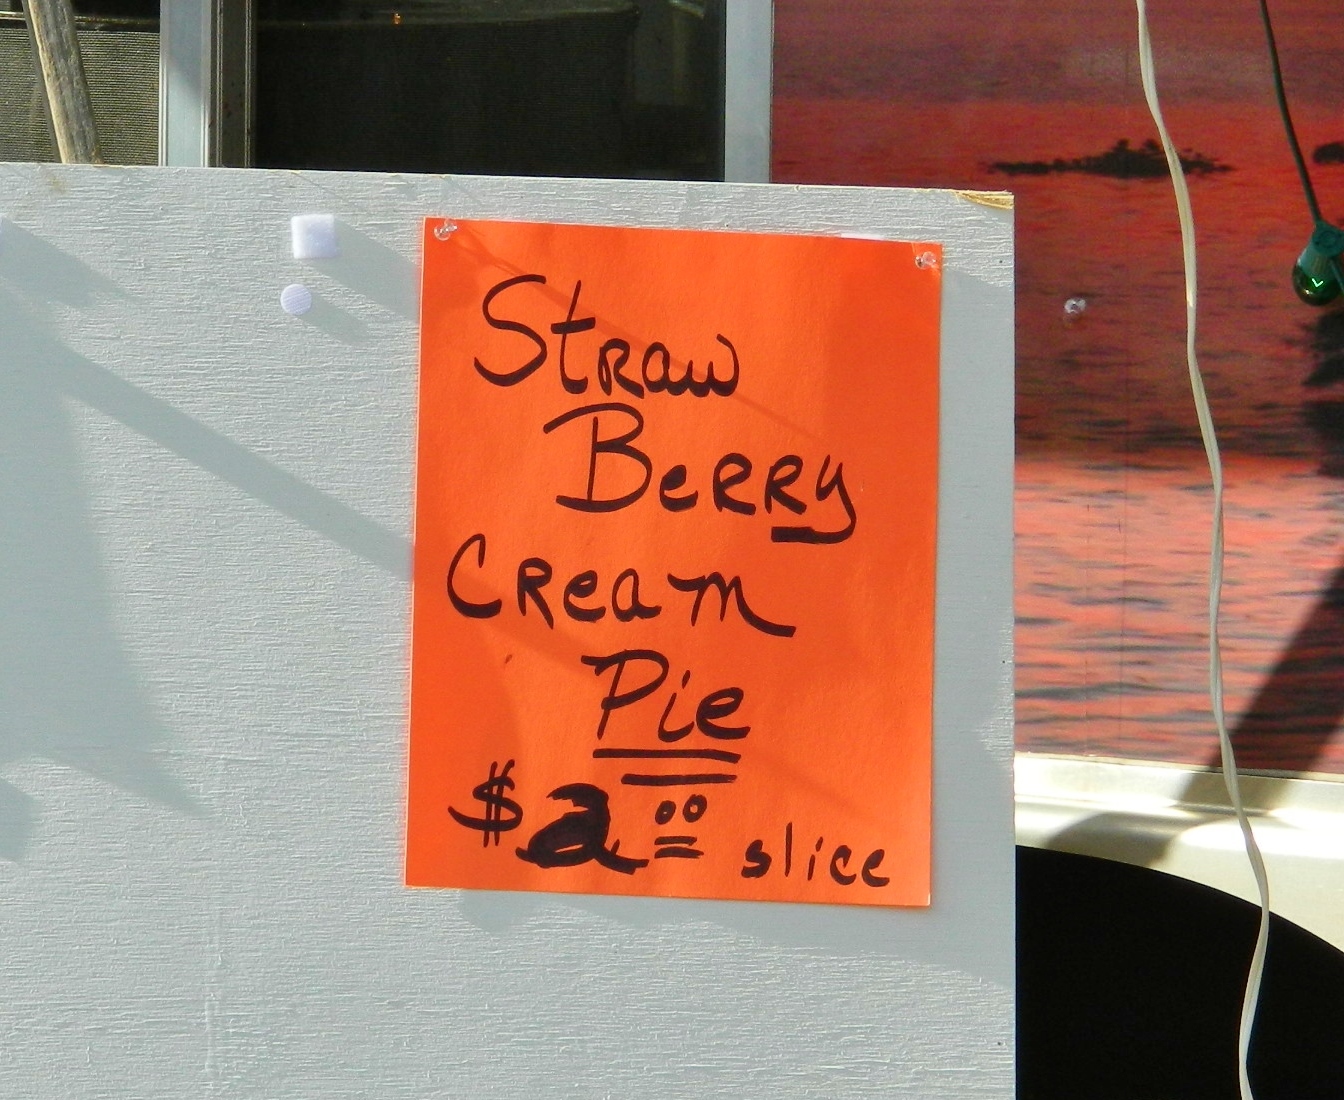 Straw
Berry
Cream
Pie
$2.00 slice